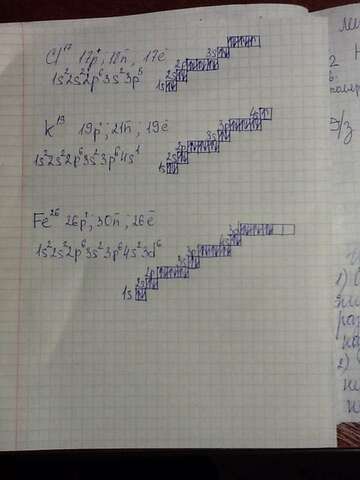 Cl¹⁷ 17p⁺; 18n; 17e
1s²2s²2p⁶3s²3p⁵
1s 2s 2p 3s
K¹⁹ 19p; 21n; 19e
1s²2s²2p⁶3s²3p⁶4s¹
1s 2s 2p 3s 3p 4s
Fe²⁶ 26p; 30n; 26e
1s²2s²2p⁶3s²3p⁶4s²3d⁶
1s 2s 2p 3s 3p 4s
1)
2)